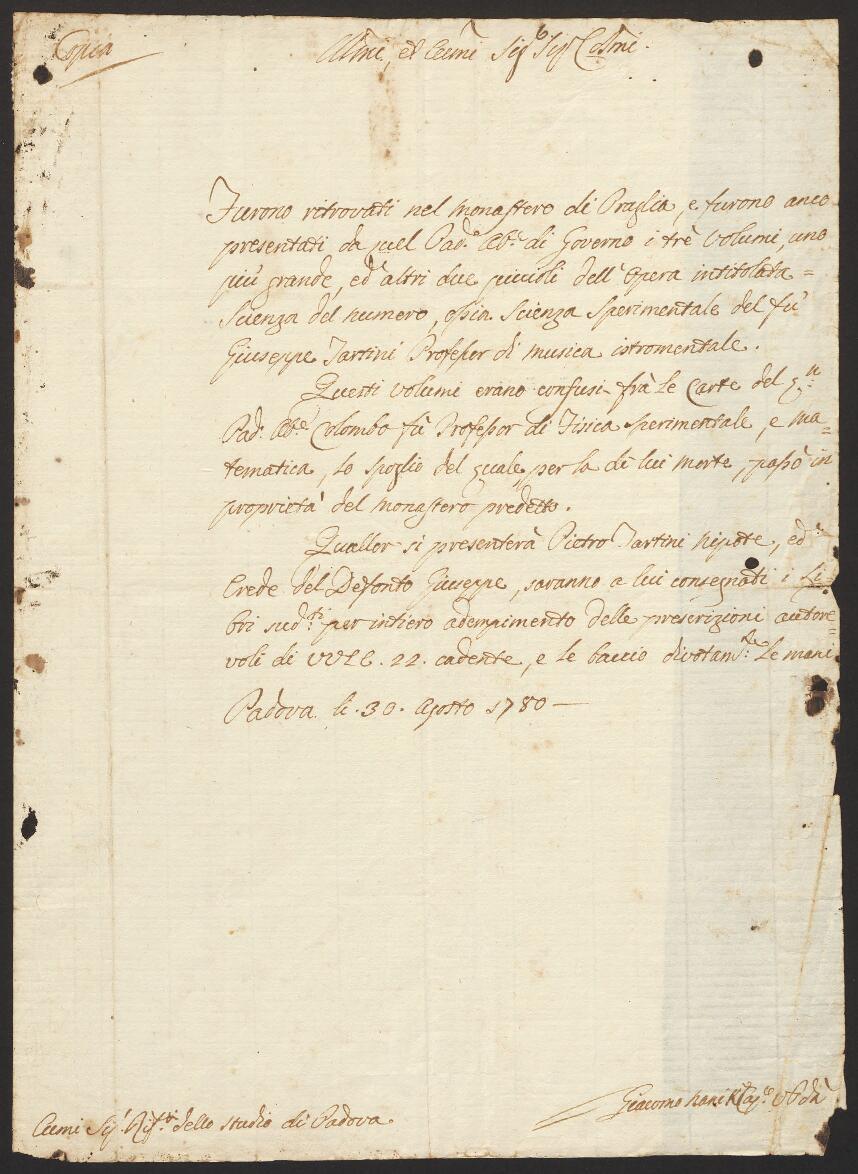 Copia
Illmi, et Eccmi Sigri Sigri Colmi.
Furono ritrovati nel Monastero di Praglia, e furono anco
presentati da quel Pad.e Ab.e di Governo i trè Volumi, uno
più grande, ed altri due piccioli dell'Opera intitolata =
Scienza del numero, ossia Scienza Sperimentale del fù
Giuseppe Tartini Professor di musica istromentale.
Questi Volumi erano confusi frà le Carte del
Pad.e Ab.e Colombo fù Professor di Fisica sperimentale, e ma=
tematica, lo spoglio del quale, per la di lui morte, passò in
proprietà del Monastero predetto.
Quallor si presenterà Pietro Tartini Nipote, ed
Erede del Defonto Giuseppe, saranno a lui consegnati i Li=
bri sud.ti per intiero adempimento delle prescrizioni autore=
voli di VVEE. 22. cadente, e le baccio divotam.te le mani
Padova li. 30. Agosto 1780 —
Eccmi Sig.ri Rif.ri dello studio di Padova.
Giacomo Nani Cap.o